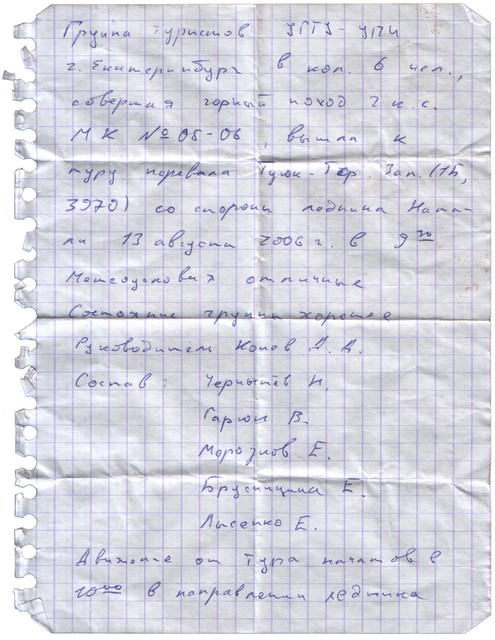 Группа туристов УГТУ-УПИ
г. Екатеринбург в кол. 6 чел.,
совершая горный поход 2 к.с.
МК № 05-06, вышла к
туру перевала Гуюк-Гор. Зап. (1Б,
3970) со стороны ледника
13 августа 2006 г. в 9 30
Метеоусловия отличные
Состояние группы хорошее
Руководитель Попов Д. А.
Состав: Чернышёв Н.
Гарюк В.
Морозов Е.
Брусницына Е.
Лысенко Е.
Движение от тура начато в
10 00 в направлении ледника